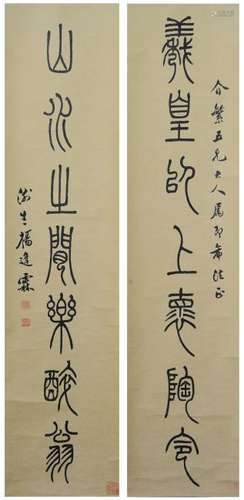 介繁五兄大人屬即希法正
羲皇以上褱陶令
山水之間樂醉翁
生楊進霖